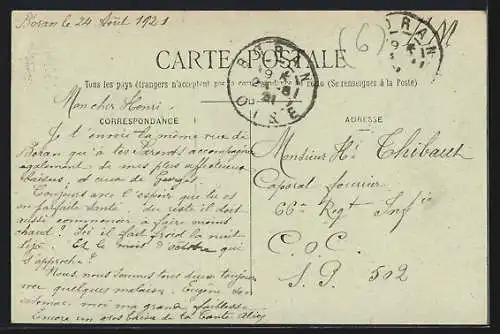 Boran le 24 Août 1921
(6)
CARTE POSTALE
Tous les pays étrangers n'acceptent pas la correspondance au recto (Se renseignements à la Poste)
CORRESPONDANCE
ADRESSE
BORAN
OISE
Mon cher Henri.
Je t'envoie la même vue de
Boran qu'à les Parents accompagnée
également de mes plus affectueux
baisers, et ceux de Georges
Toujours avec l'espoir que tu es
en parfaite santé, du reste il doit
aussi commencer à faire moins
chaud? Ici il fait froid la nuit
Et le mois d'octobre qui
s'approche?
Nous, nous sommes tous deux toujours
avec quelques malaises. Eugène son
estomac, moi ma grande faiblesse.
Encore un gros baiser de ta Tante
Monsieur Hi Thibault
Caporal fourrier
66e Regt Infie
C.O.C.
S.P. 502